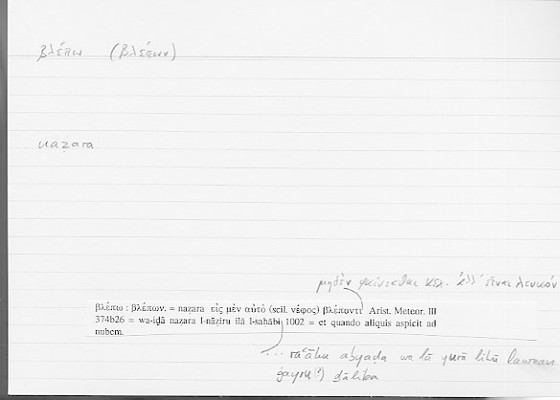 βλέπω (βλέπων)
naẓara
μηδὲν φαίνεσθαι κτλ. ἀλλ' εἶναι λευκόν
βλέπω : βλέπων. = naẓara εἰς μὲν αὐτὸ (scil. νέφος) βλέποντι Arist. Meteor. III
374b26 = wa-iḏā naẓara l-nāẓiru ilā l-saḥābi 1002 = et quando aliquis aspicit ad
nubem.
... ra'āhu abyaḍa wa lā yurā lahū lawnan
ġayru(!) ḏālika